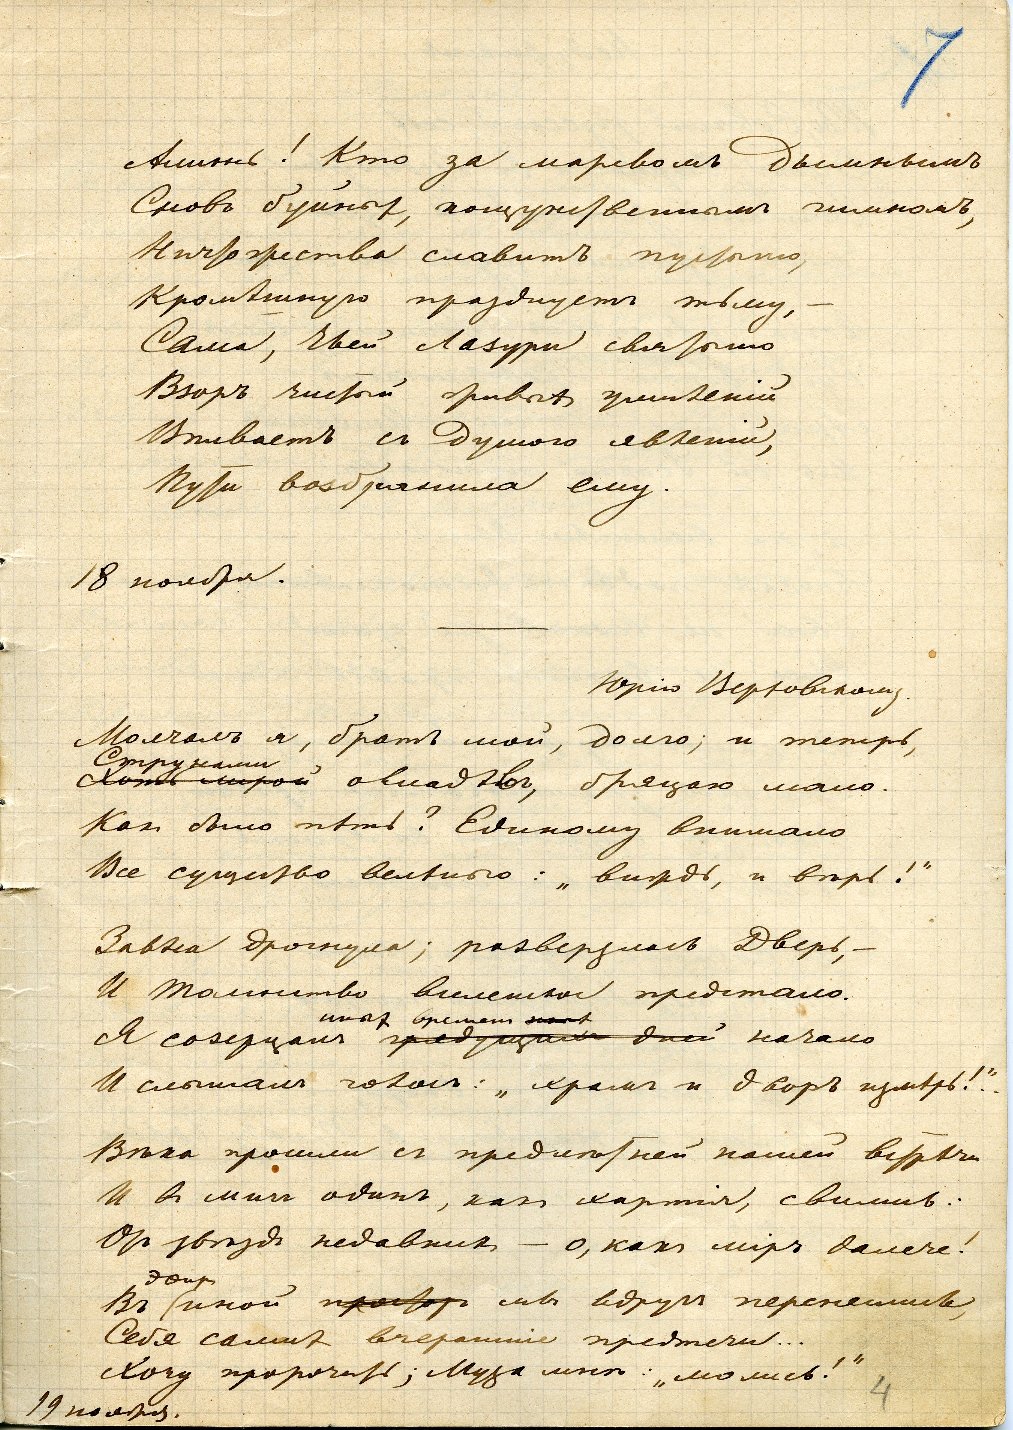 7
Аминь! Кто за маревомъ дымнымъ
Сновъ буйныхъ, кощунственнымъ гимномъ,
Ничтожества славитъ пустыню,
Кромѣшную празднуетъ тьму, —
Сама, Чьей Лазури святыню
Взоръ чистый живыхъ умиленій
Впиваетъ съ душою явленій,
Пути возбранила ему.
18 ноября.
Юрію Верховскому.
Молчалъ я, братъ мой, долго; и теперь,
Струнами
Хоть лирой овладѣвъ, бряцаю мало.
Какъ было пѣть? Единому внимало
Все существо велѣнью: „виждь, и вѣрь!"
Завѣса дрогнула; разверзлась Дверь, —
И Таинство вселенское предстало.
иныхъ временъ
Я созерцалъ грядущихъ дней начало
И слышалъ гласъ: „храмъ и дворъ измѣрь!".
Вѣка прошли съ предлѣтней нашей встрѣчи
И въ мигъ одинъ, какъ хартія, свились:
Отъ звѣздъ недавнихъ — о, какъ міръ далече!
эѳиръ
Въ иной просторъ мы вдругъ перенеслись,
Себя самихъ вчерашніе предтечи...
Хочу пророчить; Муза мнѣ: „молись!"
19 ноября.
4